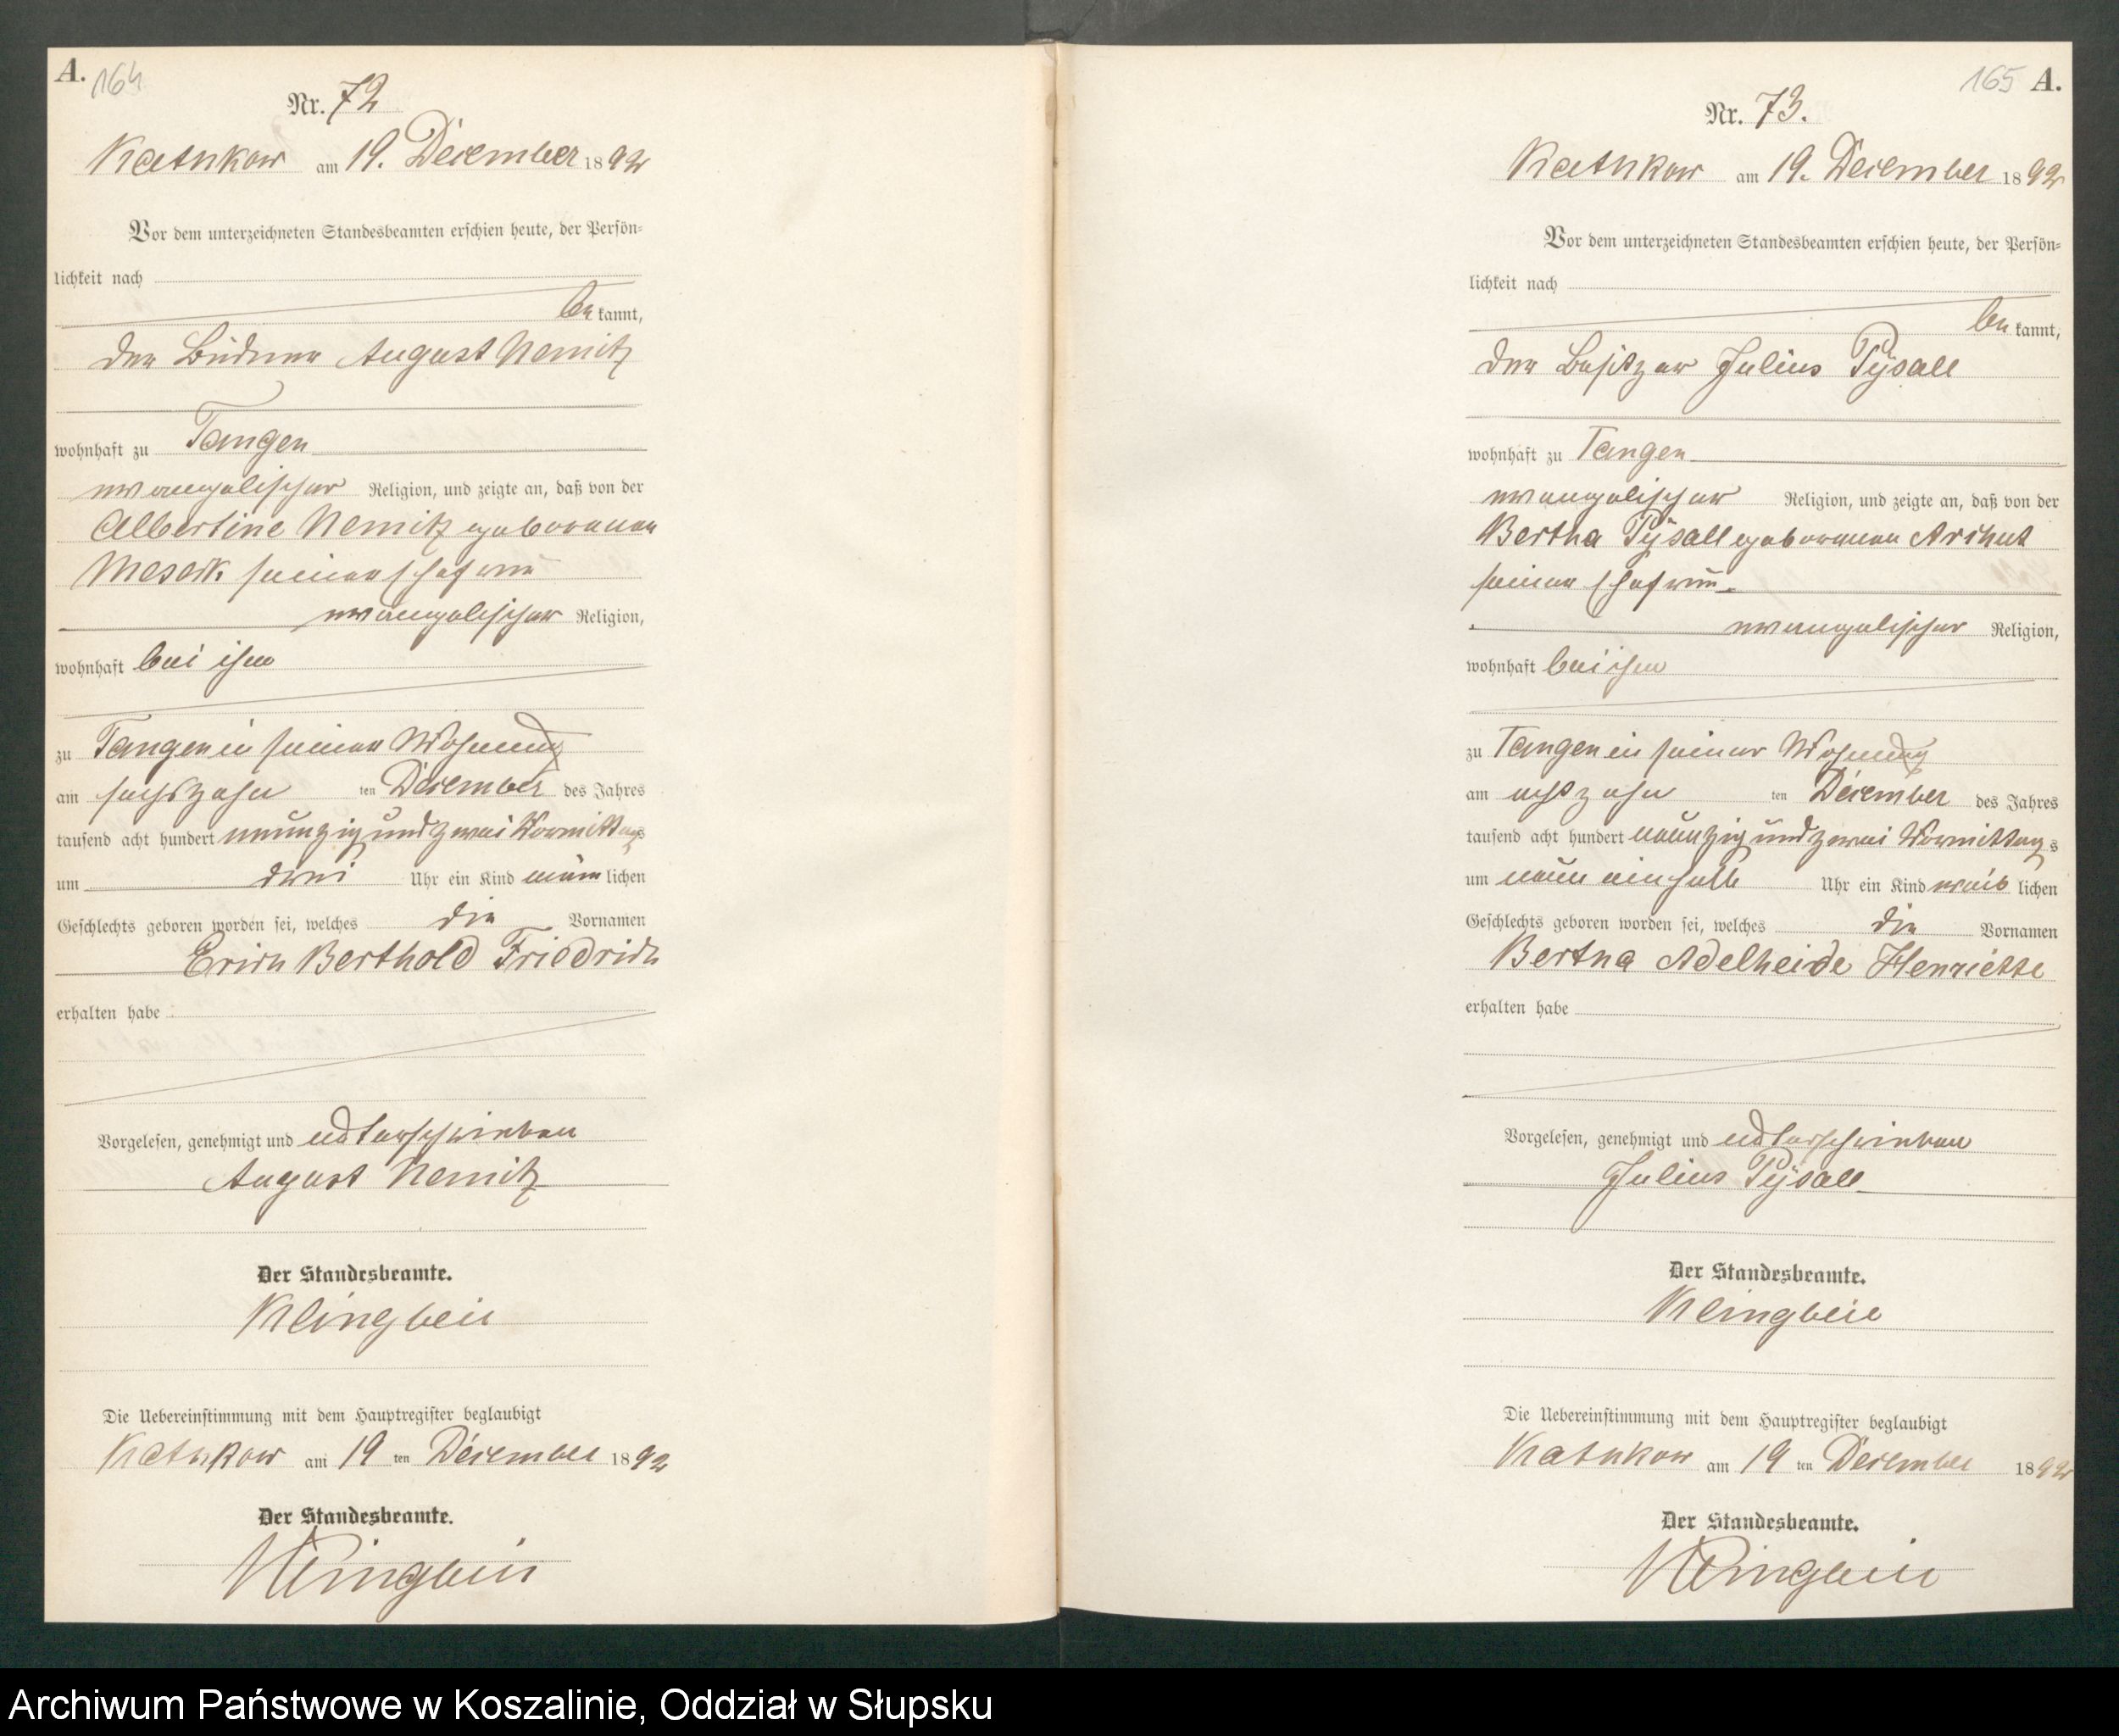 A. 164
Nr. 72
Kathkow am 19. December 1892
Vor dem unterzeichneten Standesbeamten erschien heute, der Persön-
lichkeit nach
be kannt,
der Büdner August Nemitz
wohnhaft zu Tangen
evangelischer Religion, und zeigte an, daß von der
Albertine Nemitz geborenen
seiner Ehefrau
evangelischer Religion,
wohnhaft bei ihm
zu Tangen in seiner Wohnung
am sechszehn ten December des Jahres
tausend acht hundert neunzig und zwei Vormittags
um drei Uhr ein Kind männ lichen
Geschlechts geboren worden sei, welches die Vornamen
Erich Berthold Friedrich
erhalten habe
Vorgelesen, genehmigt und unterschrieben
August Nemitz
Der Standesbeamte.
Klingbeil
Die Uebereinstimmung mit dem Hauptregister beglaubigt
Kathkow am 19 ten December 1892
Der Standesbeamte.
Klingbeil
165 A.
Nr. 73.
Kathkow am 19. December 1892
Vor dem unterzeichneten Standesbeamten erschien heute, der Persön-
lichkeit nach
be kannt,
der Besitzer Julius Pÿsall
wohnhaft zu Tangen
evangelischer Religion, und zeigte an, daß von der
Bertha Pÿsall geborenen Archut
seiner Ehefrau
evangelischer Religion,
wohnhaft bei ihm
zu Tangen in seiner Wohnung
am achtzehn ten December des Jahres
tausend acht hundert neunzig und zwei Vormittags
um neun einhalb Uhr ein Kind weib lichen
Geschlechts geboren worden sei, welches die Vornamen
Bertha Adelheide Henriette
erhalten habe
Vorgelesen, genehmigt und unterschrieben
Julius Pÿsall
Der Standesbeamte.
Klingbeil
Die Uebereinstimmung mit dem Hauptregister beglaubigt
Kathkow am 19 ten December 1892
Der Standesbeamte.
Klingbeil
Archiwum Państwowe w Koszalinie, Oddział w Słupsku